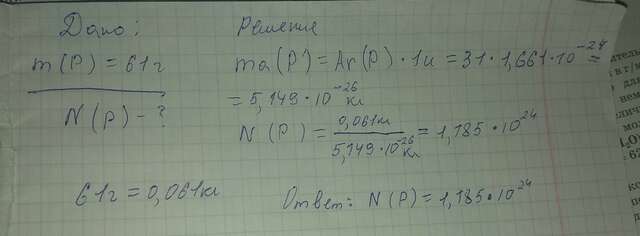 Дано:
m(P) = 61г
N(P) - ?
61г = 0,061кг
Решение
ma(P) = Ar(P) · 1u = 31 · 1,661 · 10⁻²⁴ =
= 5,149 · 10⁻²⁶ кг
N(P) = 0,061кг / 5,149 · 10⁻²⁶ кг = 1,185 · 10²⁴
Ответ: N(P) = 1,185 · 10²⁴